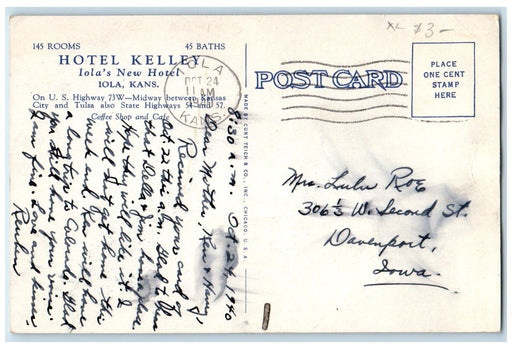 XL $3-
145 ROOMS 45 BATHS
HOTEL KELLEY
Iola's New Hotel
IOLA, KANS.
On U. S. Highway 73W—Midway between Kansas
City and Tulsa also State Highways 54 and 57.
Coffee Shop and Cafe
IOLA
OCT 24
11 AM
1940
KANS.
POST CARD
PLACE
ONE CENT
STAMP
HERE
MADE BY CURT TEICH & CO., INC., CHICAGO, U.S.A.
8:30 a.m. Oct. 24, 1940
Dear Mother, Ken & Harry,
Received your card of
Oct. 22 this a.m. Glad to hear
that Dale & Jim
Hope they will like it. I
will not get home this
week end. Ken will have
a long trip to Colorado. Glad
you still have your voice.
I am fine. Love and kisses
Reuben
Mrs. Lulu Roe
306½ W. Second St.
Davenport,
Iowa.